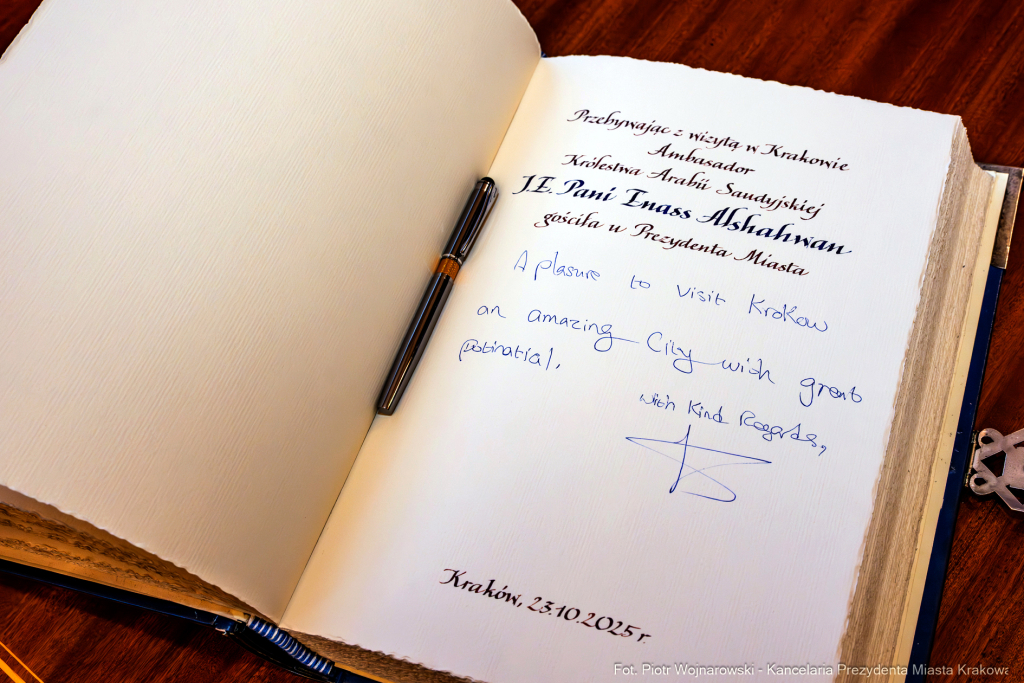 Przebywając z wizytą w Krakowie
Ambasador
Królestwa Arabii Saudyjskiej
J.E. Pani Enass Alshahwan
gościła u Prezydenta Miasta
A plasure to visit Krokow
an amazing City with great
potinatial,
with Kind Regards,
Kraków, 23.10.2025 r
Fot. Piotr Wojnarowski - Kancelaria Prezydenta Miasta Krakowa